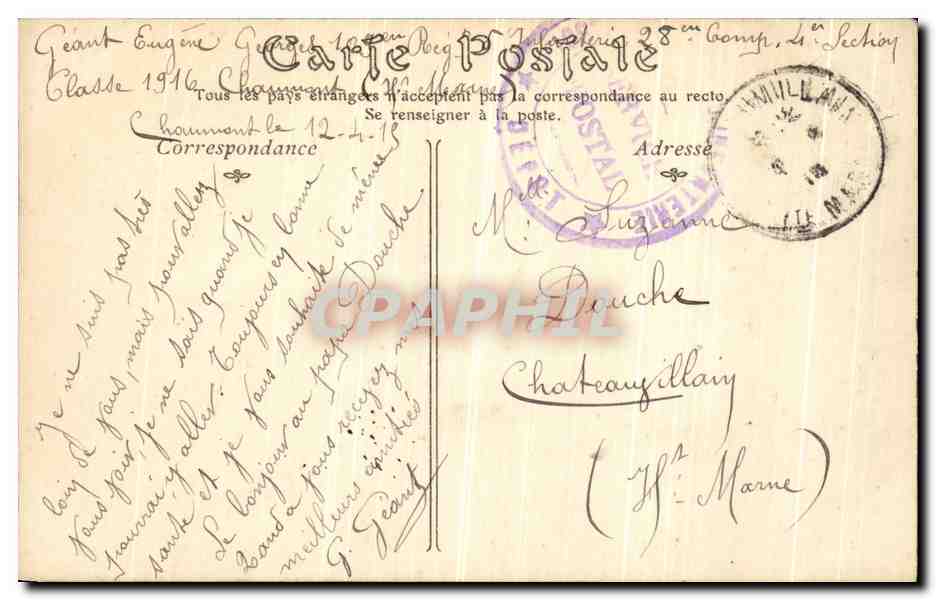 Géant Eugène Georges Reg Infanterie 28em Comp. 4e Section
Classe 1916 Chaumont Hte Marne
Carte Postale
Tous les pays étrangers n'acceptent pas la correspondance au recto.
Se renseigner à la poste.
Chaumont le 12-4-15
Correspondance
Adresse
Je ne suis pas très
loin de vous, mais pour aller
vous voir, je ne sais quand je
pourrai y aller. Toujours en bonne
santé et je vous souhaite de même
Le bonjour au papa Douche
Quand à vous recevez mes
meilleurs amitiés
G. Géant
Mell. Suzanne
Douche
Chateauvillain
(Hte Marne)
SERVICE
POSTAL
DÉPÔT
INFANTERIE
CPAPHIL